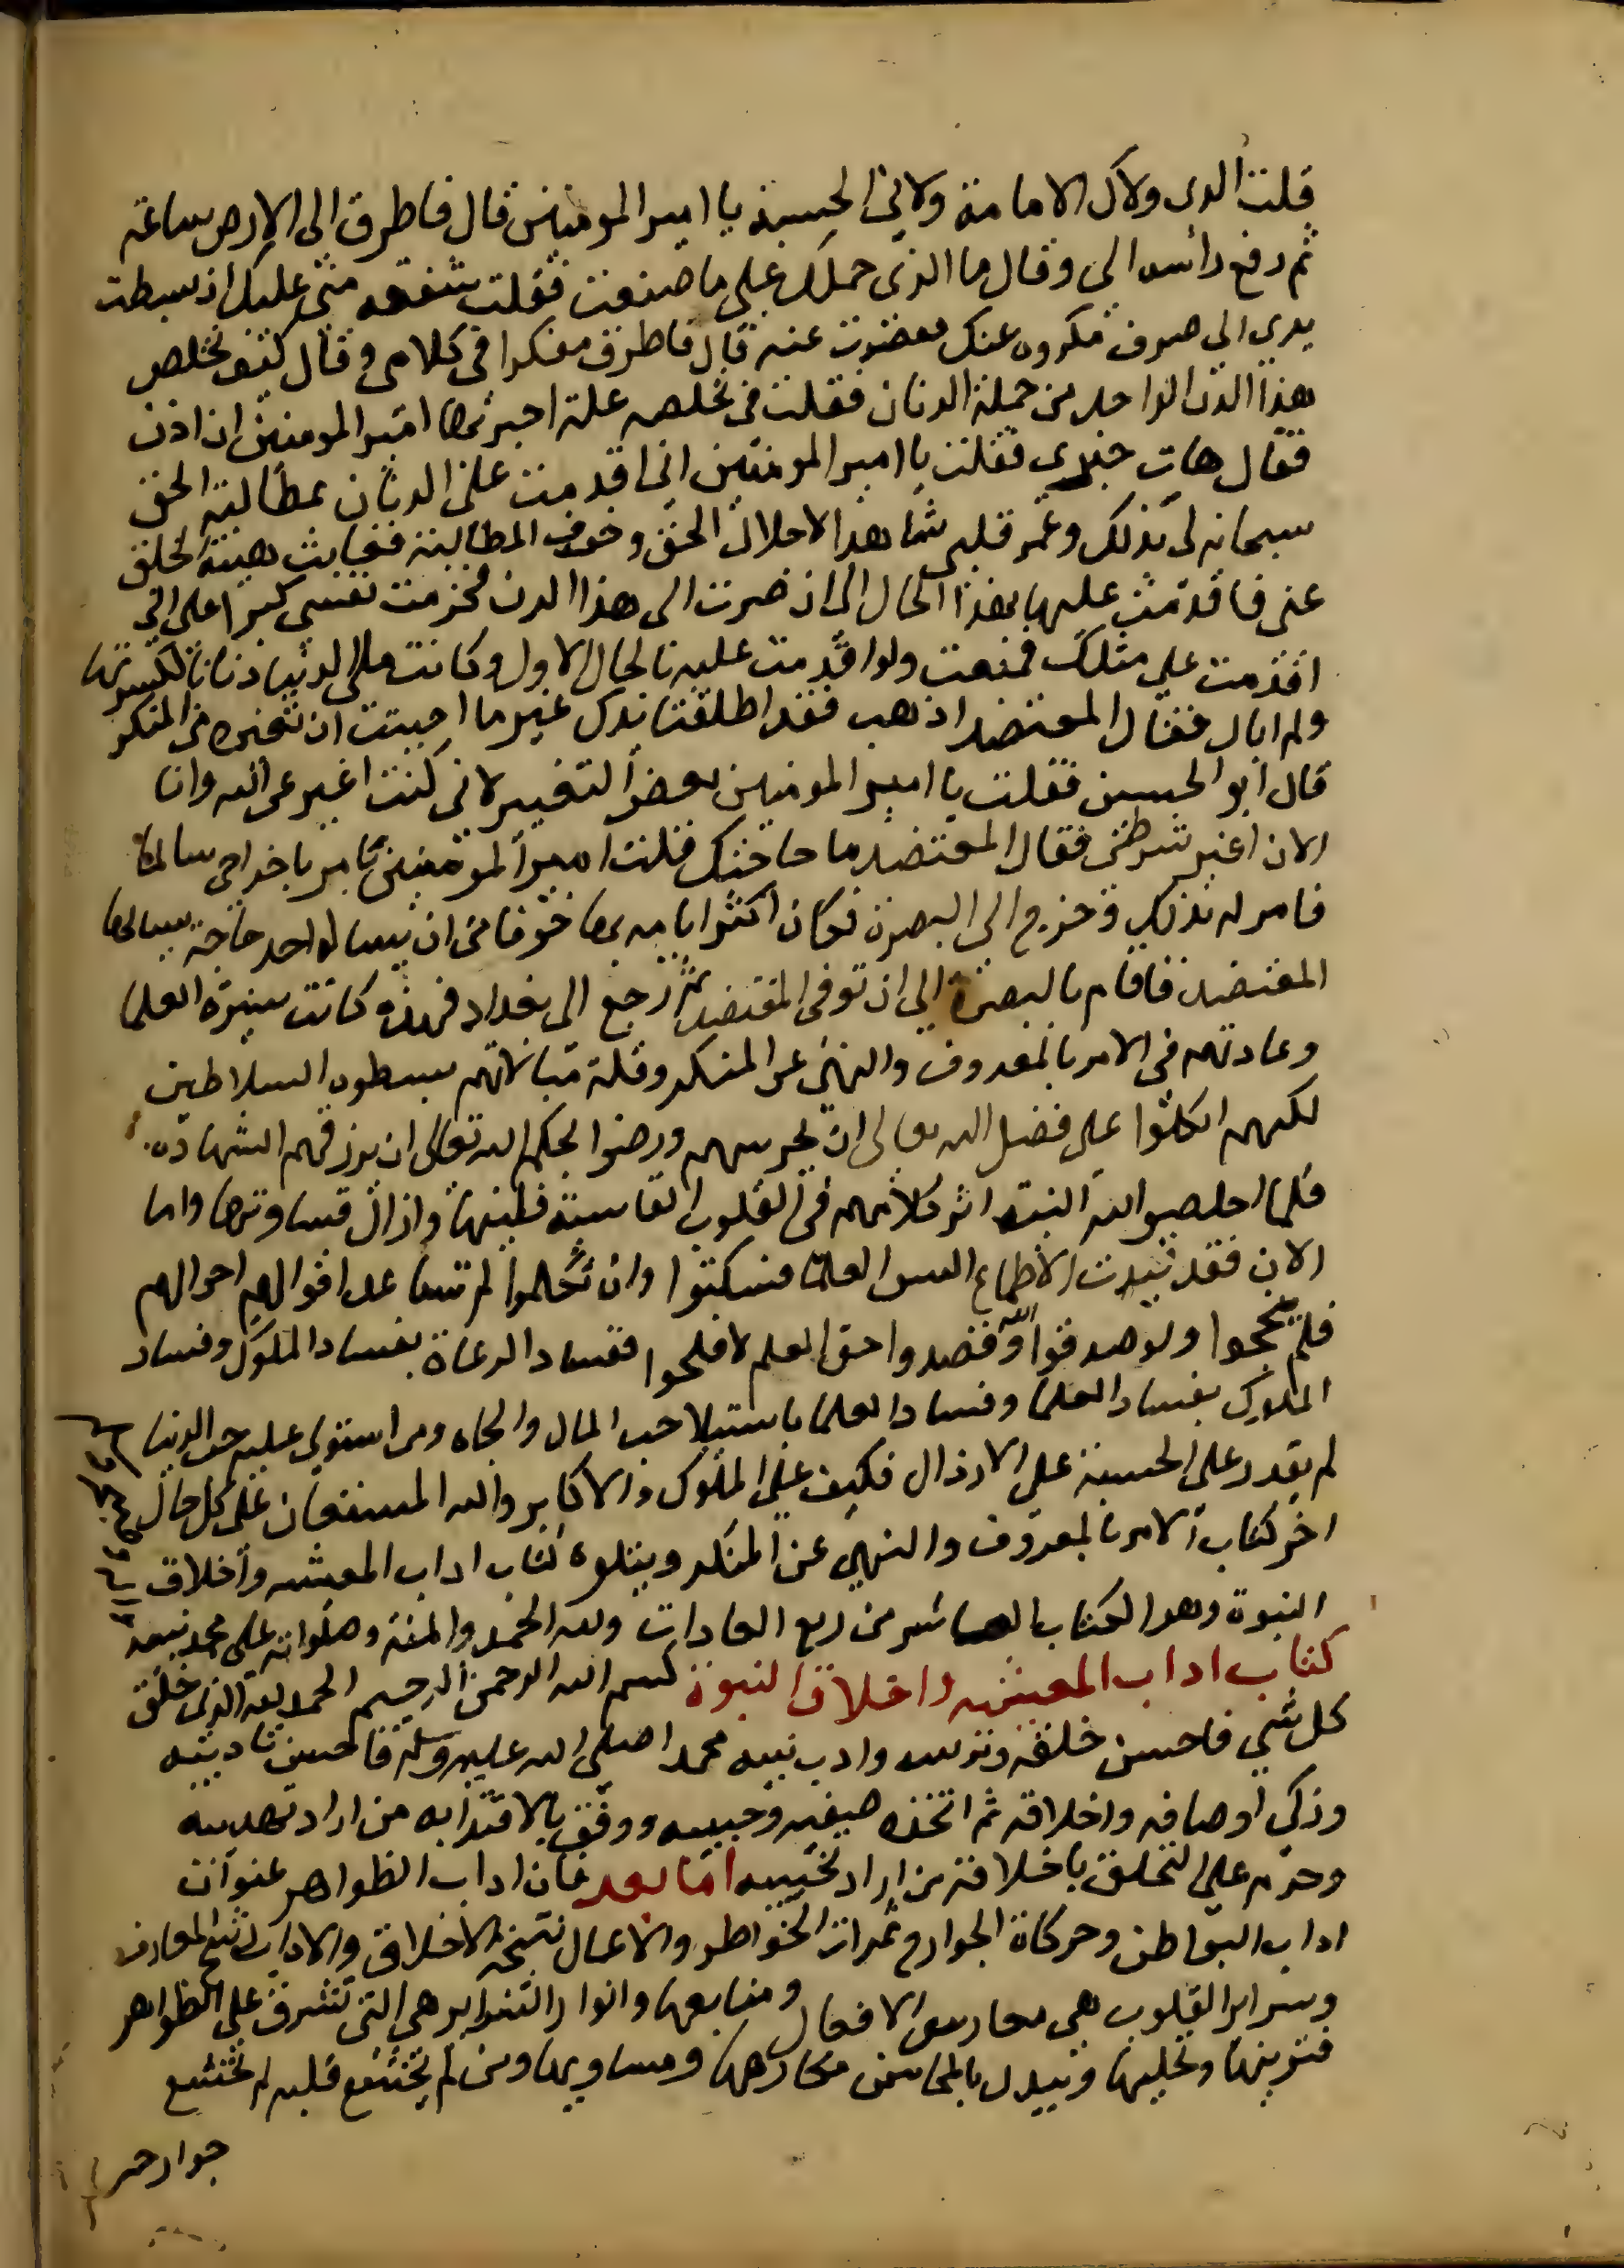 قلت الذي ولاك الامامة ولاني الحسبة يا امير المومنين قال فاطرق الى الارض ساعة
ثم رفع رأسه الى وقال ما الذي حملك على ما صنعت فقلت شفقه منى عليك اذ بسطت
يدي الى صرف مكروه عنك فقصرت عنه قال فاطرق مفكرا في كلامى وقال كيف تخلص
هذا الدن الواحد من جملة الدنان فقلت في تخلصه علة اخبر بها امير المومنين ان اذن
فقال هات خبري فقلت يا امير المومنين انى اقدمت على الدنان بمطالبة الحق
سبحانه لى بذلك وغمر قلبي شاهد الاجلال الحق وخوف المطالبة فغابت هيبة الخلق
عنى فاقدمت عليها بهذا الحال الى ان صرت الى هذا الدن فجزمت نفسي كبرا على انى
اقدمت على مثلك فمنعت ولو اقدمت عليه بالحال الاول وكانت ملا الدنيا دنانا لكسرتها
ولم ابال فقال المعتضد اذهب فقد اطلقنا يدك غير ما احببت ان تغيره من المنكر
قال ابو الحسين فقلت يا امير المومنين بغض التغيير لانى كنت اغير عن الله وانا
الان اغير شرطى فقال المعتضد ما حاجتك فقلت امير المومنين تامر باخراجي سالما
فامر له بذلك وخرج الى البصرة فكان اكثر ايامه بها خوفا من ان يساله احد حاجة يسالها
المعتضد فاقام بالبصرة الى ان توفى المعتضد ثم رجع الى بغداد فهذه كانت سيرة العلما
وعادتهم في الامر بالمعروف والنهى عن المنكر وقلة مبالاتهم بسطوه السلاطين
لكنهم اتكلوا على فضل الله تعالى ان يحرسهم ورضوا بحكم الله تعالى ان يرزقهم الشهادة
فلما اخلصوا لله النية اثر كلامهم في القلوب القاسية فلينها وازال قساوتها واما
الان فقد قيدت الاطماع السن العلما فسكتوا وان تكلموا لم تساعد اقوالهم احوالهم
فلم ينجحوا ولو صدقوا الله وقصدوا حق العلم لافلحوا ففساد الرعاة بفساد الملوك وفساد
الملوك بفساد العلما وفساد العلما باستيلا حب المال والجاه ومن استولى عليه حب الدنيا
لم يقدر على الحسبة على الارذال فكيف على الملوك والاكابر والله المستعان على كل حال
اخر كتاب الامر بالمعروف والنهي عن المنكر ويتلوه كتاب اداب المعيشه واخلاق
النبوة وهو الكتاب العاشر من ربع العادات ولله الحمد والمنة وصلواته على محمد نبيه
كتاب اداب المعيشه واخلاق النبوة بسم الله الرحمن الرحيم الحمد لله الذي خلق
كل شي فاحسن خلقه وترتيبه وادب نبيه محمدا صلى الله عليه وسلم فاحسن تاديبه
وزكى اوصافه واخلاقه ثم اتخذه صفيه وحبيبه ووفق بالاقتدا به من اراد تهذيبه
وحرم على التخلق باخلاقه من اراد تخييبه اما بعد فان اداب الظواهر عنوان
اداب البواطن وحركاة الجوارح ثمرات الخواطر والاعمال نتيجة الاخلاق والاداب رشح المعارف
وسراير القلوب هي مغارس الافعال ومنابعها وانوار السراير هي التى تشرق على الظواهر
فتزينها وتحليها وتبدل بالمحاسن مكارهها ومساويها ومن لم يخشع قلبه لم تخشع
جوارحه